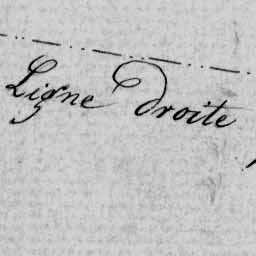 Ligne droite